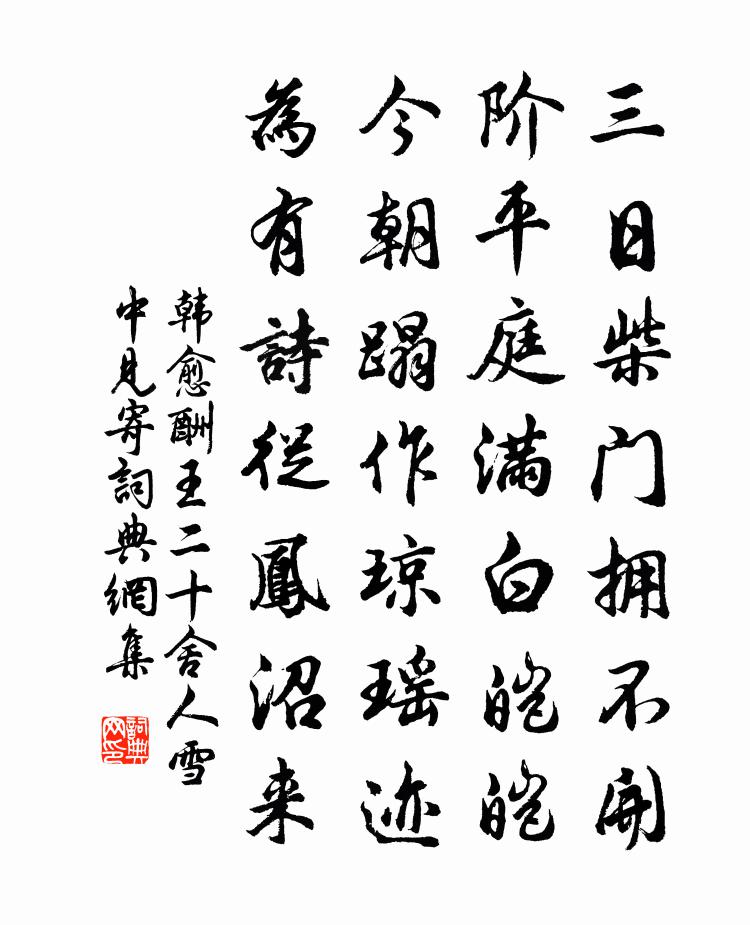 三日柴门拥不開
阶平庭满白皑皑
今朝蹋作琼瑶迹
為有詩從鳳沼来
韩愈酬王二十舍人雪
中见寄詞典網集
詞典网印